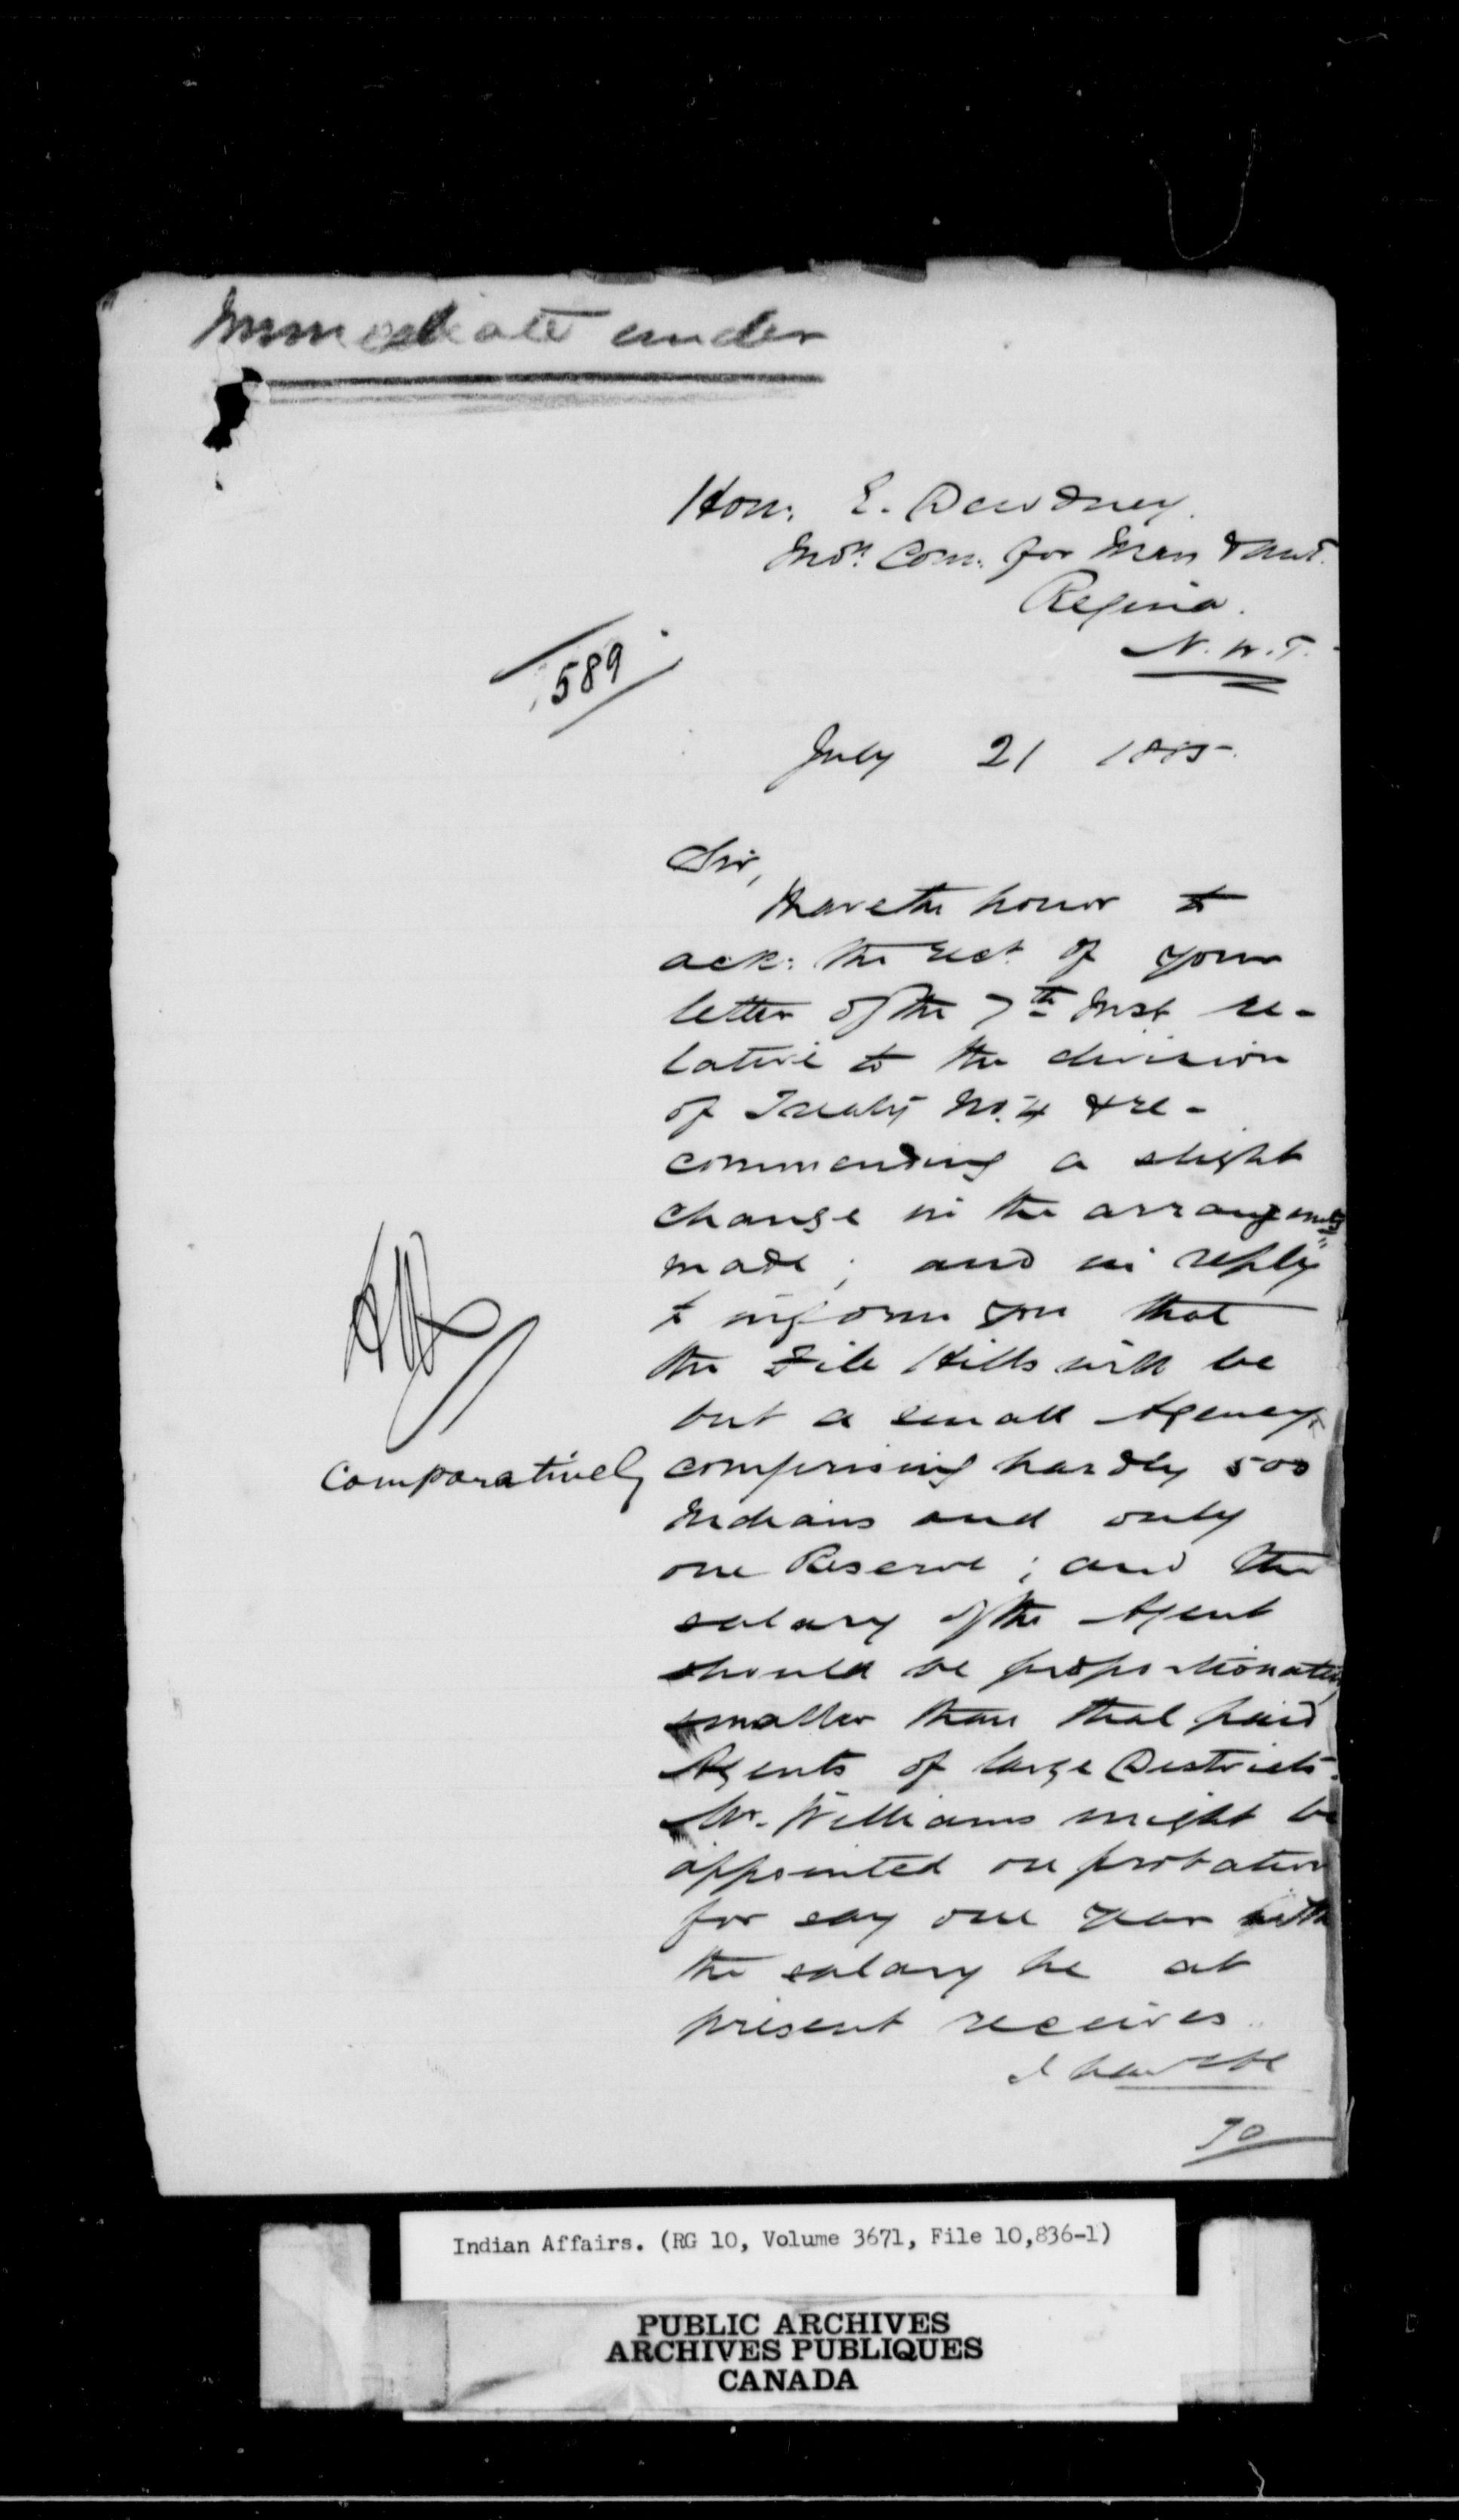 Immediate under
Hon. E. Dewdney.
Ind. Com. for Man & NWT.
Regina.
N.W.T.
589
July 21 1885.
Sir,
I have the honor to
ack: the rect. of your
letter of the 7th Inst re-
lative to the division
of Treaty No. 4 & re-
commending a slight
change in the arrangemts
made; and in reply
to inform you that
the File Hills will be
but a small Agency,
Comparatively
comprising hardly 500
Indians and only
one Reserve; and the
salary of the Agent
should be proportionately
smaller than that paid
Agents of large Districts.
Mr. Williams might be
appointed on probation
for say one year with
the salary he at
present receives.
I have the
Indian Affairs. (RG 10, Volume 3671, File 10,836-1)
PUBLIC ARCHIVES
ARCHIVES PUBLIQUES
CANADA